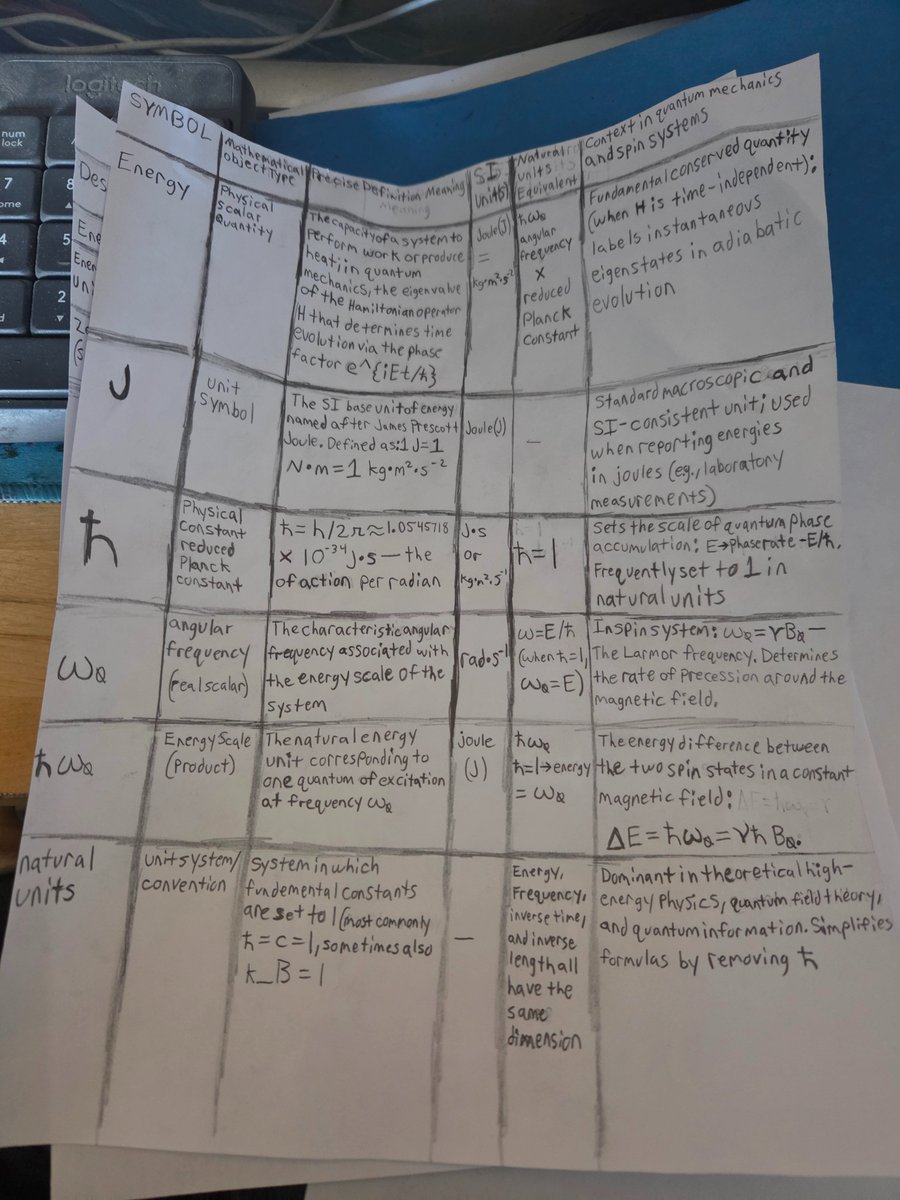 logitech
num
lock
7
8
ome
4
5
2
Des
Ene
Ener
uni
SYMBOL
Mathematical
object Type
Precise Definition Meaning
Meaning
SI
Units
Natural
units
Equivalent
Context in quantum mechanics
and spin systems
Energy
Physical
Scalar
Quantity
The capacity of a system to
perform work or produce
heat; in quantum
mechanics, the eigenvalue
of the Hamiltonian operator
H that determines time
evolution via the phase
factor e^{iEt/ħ}
Joule(J)
=
kg•m²•s⁻²
ħωQ
angular
frequency
×
reduced
Planck
Constant
Fundamental conserved quantity
(when H is time-independent);
labels instantaneous
eigenstates in adiabatic
evolution
J
Unit
Symbol
The SI base unit of energy
named after James Prescott
Joule. Defined as: 1 J = 1
N•m = 1 kg•m²•s⁻²
Joule(J)
—
Standard macroscopic and
SI-consistent unit; used
when reporting energies
in joules (eg., laboratory
measurements)
ħ
Physical
Constant
reduced
Planck
constant
ħ = h/2π ≈ 1.0545718
× 10⁻³⁴ J•s — the
of action per radian
J•s
or
kg•m²•s⁻¹
ħ=1
ħ=1
Sets the scale of quantum phase
accumulation: E→phase rate -E/ħ.
Frequently set to 1 in
natural units
ωQ
angular
frequency
(real scalar)
The characteristic angular
frequency associated with
the energy scale of the
system
rad•s⁻¹
ω=E/ħ
(when ħ=1,
ωQ=E)
In spin system: ωQ = γBQ —
The Larmor frequency. Determines
the rate of Precession around the
magnetic field.
ħωQ
Energy Scale
(Product)
The natural energy
unit corresponding to
one quantum of excitation
at frequency ωQ
joule
(J)
ħωQ
ħ=1→energy
= ωQ
The energy difference between
the two spin states in a constant
magnetic field:
ΔE = ħωQ = γħBQ.
natural
units
Unit system/
convention
System in which
fundemental constants
are set to 1 (most commonly
ħ = c = 1, sometimes also
k_B = 1
—
Energy,
Frequency,
inverse time,
and inverse
length all
have the
same
dimension
Dominant in theoretical high-
energy physics, quantum field theory,
and quantum information. Simplifies
formulas by removing ħ